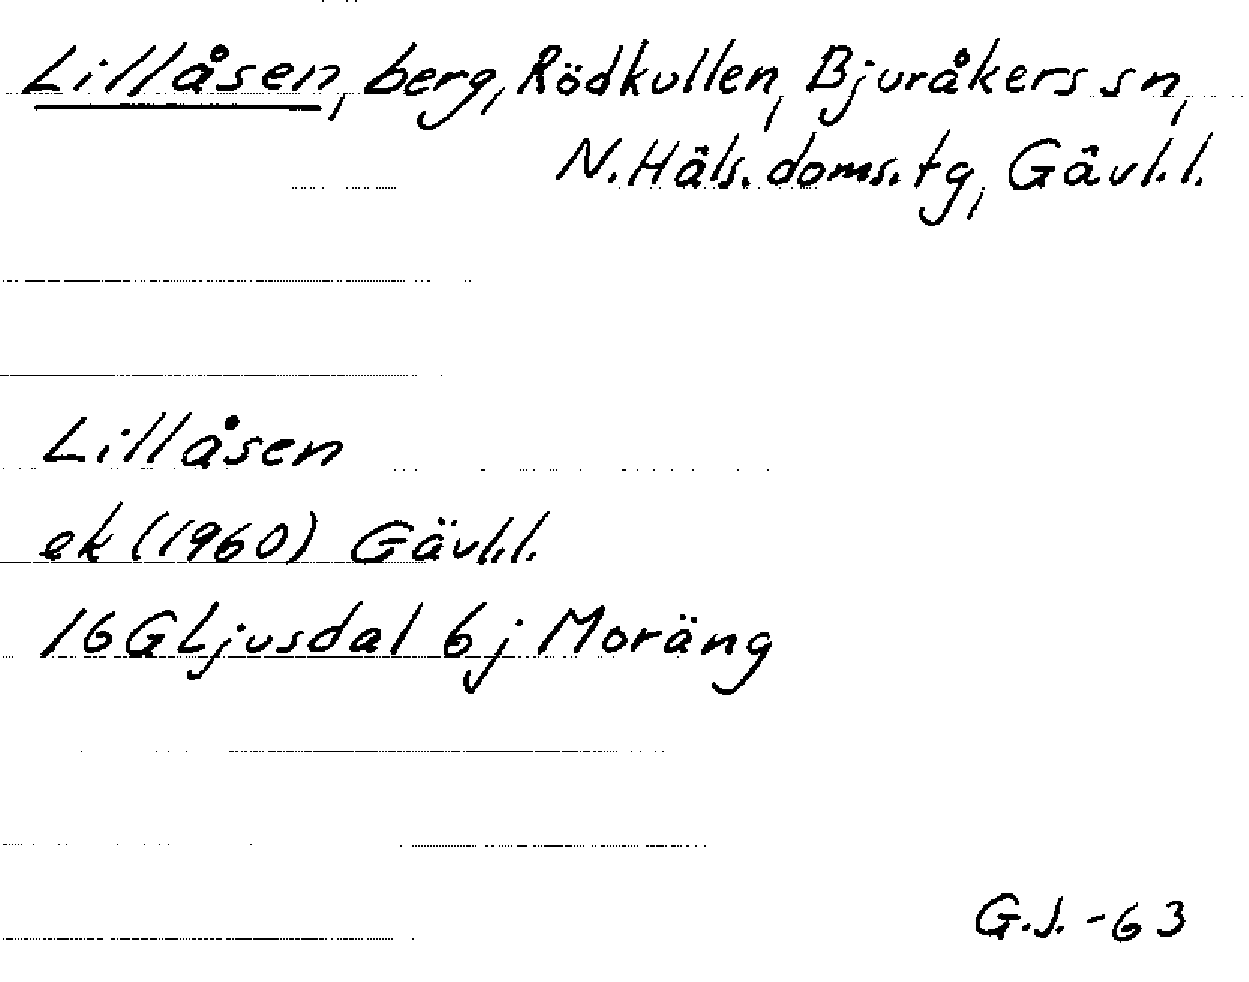 Lillåsen, berg, Rödkullen, Bjuråkers sn,
N. Häls. doms. tg, Gävl. l.
Lillåsen
ek (1960) Gävl. l.
16G Ljusdal 6j Moräng
G.J. -63